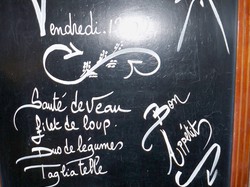 Vendredi. 1
Sauté de veau
Filet de loup.
Duo de légumes
Tagliatelle
Bon
Appétit